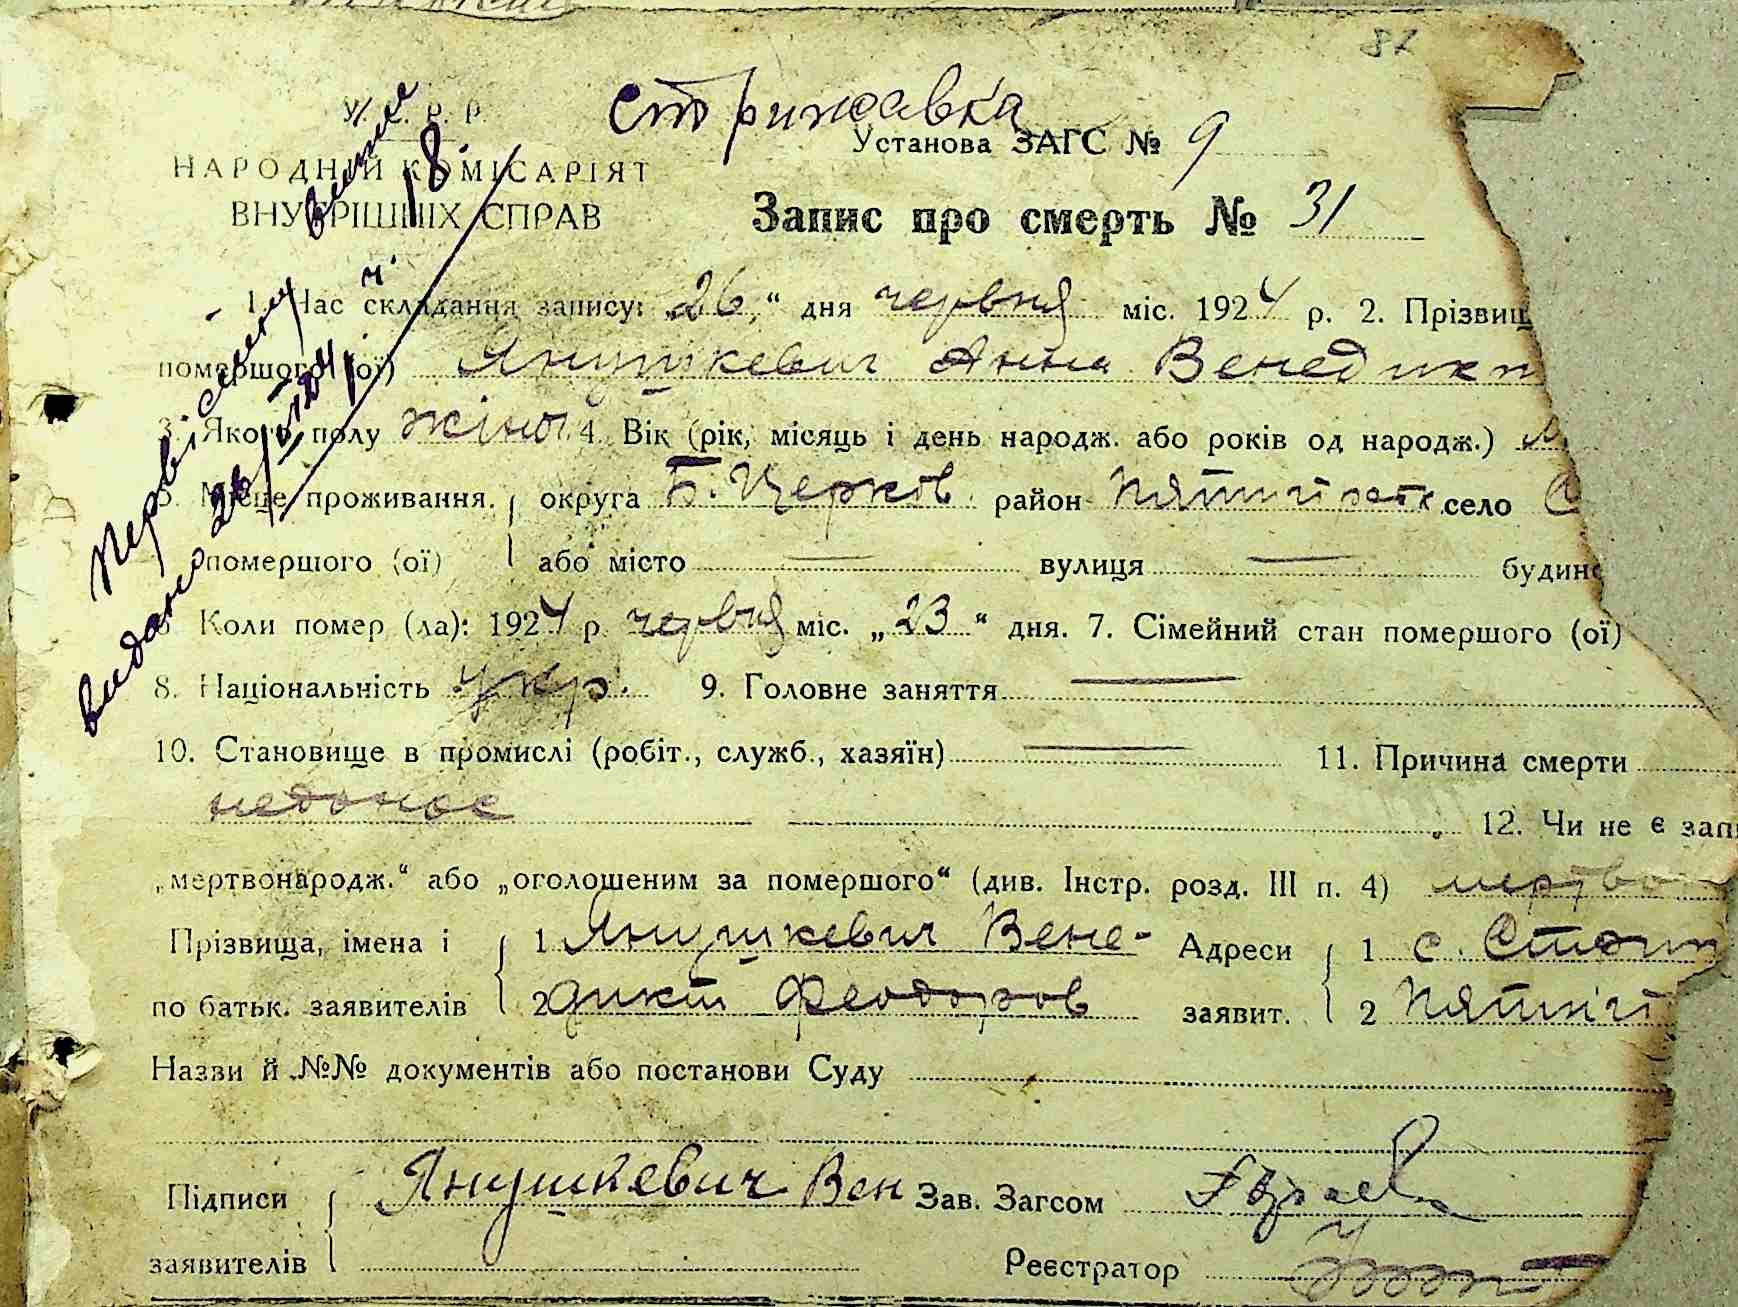 82
У. С. Р. Р.
Стрижавка
Установа ЗАГС № 9
НАРОДНИЙ КОМІСАРІЯТ
ВНУТРІШНІХ СПРАВ
Запис про смерть № 31
1. Час складання запису: „26„“ дня червня міс. 1924 р. 2. Прізвищ
помершого (ої) Янушкевич Анна Венедикт
3. Якого полу жіноч. 4. Вік (рік, місяць і день народж. або років од народж.)
5. Місце проживання. округа Б. Церков район Пятигорськ село С
помершого (ої) або місто — вулиця — будино
6. Коли помер (ла): 1924 р. червня міс. „23“ дня. 7. Сімейний стан помершого (ої)
8. Національність укр. 9. Головне заняття —
10. Становище в промислі (робіт., служб., хазяїн) — 11. Причина смерти
недонос
12. Чи не є запи
„мертвонародж.“ або „оголошеним за помершого“ (див. Інстр. розд. III п. 4) мертво
Прізвища, імена і 1 Янушкевич Вене- Адреси 1 с. Стриж
по батьк. заявителів 2 дикт Феодоров заявит. 2 Пятигі
Назви й №№ документів або постанови Суду
Підписи Янушкевич Вен Зав. Загсом
заявителів Реєстратор
видано 26/VI 24